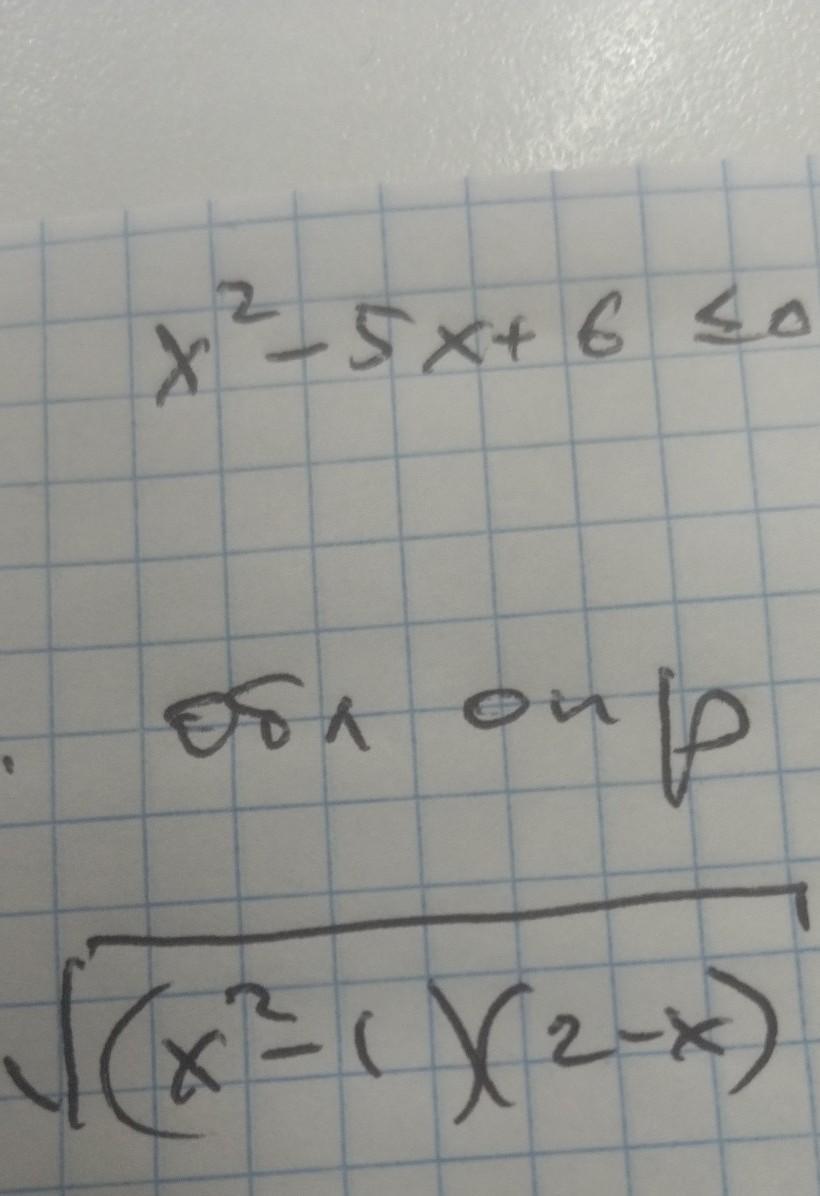 x² - 5x + 6 ≤ 0
обл опр
√(x² - 1)(2 - x)